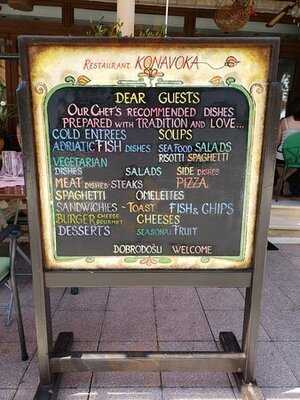 RESTAURANT KONAVOKA
DEAR GUESTS
OUR CHEF'S RECOMMENDED DISHES
PREPARED WITH TRADITION AND LOVE...
COLD ENTREES SOUPS
ADRIATIC FISH DISHES SEA FOOD SALADS
RISOTTI SPAGHETTI
VEGETARIAN
DISHES SALADS SIDE DISHES
MEAT DISHES STEAKS PIZZA
SPAGHETTI OMELETTES
SANDWICHIES - TOAST FISH & CHIPS
BURGER CHEESE GOURMET CHEESES
DESSERTS SEASONAL FRUIT
DOBRODOŠLI WELCOME